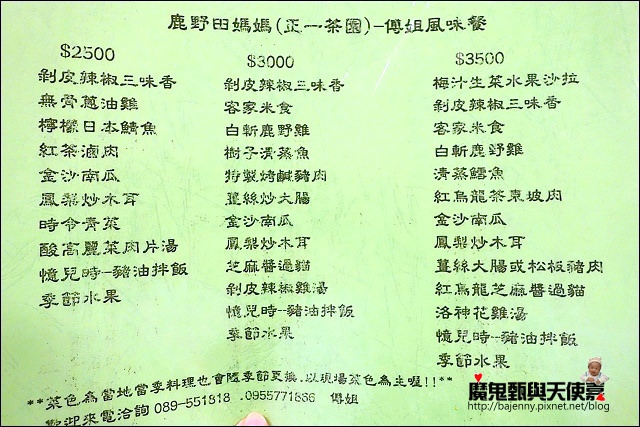 鹿野田媽媽(正一茶園)-傅姐風味餐
$2500
剝皮辣椒三味香
無骨蔥油雞
檸檬日本鯖魚
紅茶滷肉
金沙南瓜
鳳梨炒木耳
時令青菜
酸高麗菜肉片湯
憶兒時--豬油拌飯
季節水果
$3000
剝皮辣椒三味香
客家米食
白斬鹿野雞
樹子清蒸魚
特製烤鹹豬肉
薑絲炒大腸
金沙南瓜
鳳梨炒木耳
芝麻醬過貓
剝皮辣椒雞湯
憶兒時--豬油拌飯
季節水果
$3500
梅汁生菜水果沙拉
剝皮辣椒三味香
客家米食
白斬鹿野雞
清蒸鱈魚
紅烏龍茶東坡肉
金沙南瓜
鳳梨炒木耳
薑絲大腸或松板豬肉
紅烏龍芝麻醬過貓
洛神花雞湯
憶兒時--豬油拌飯
季節水果
**菜色為當地當季料理也會隨季節更換.以現場菜色為主喔!!**
歡迎來電洽詢 089-551818 .0955771886 傅姐
魔鬼甄與天使嘉
http://bajenny.pixnet.net/blog